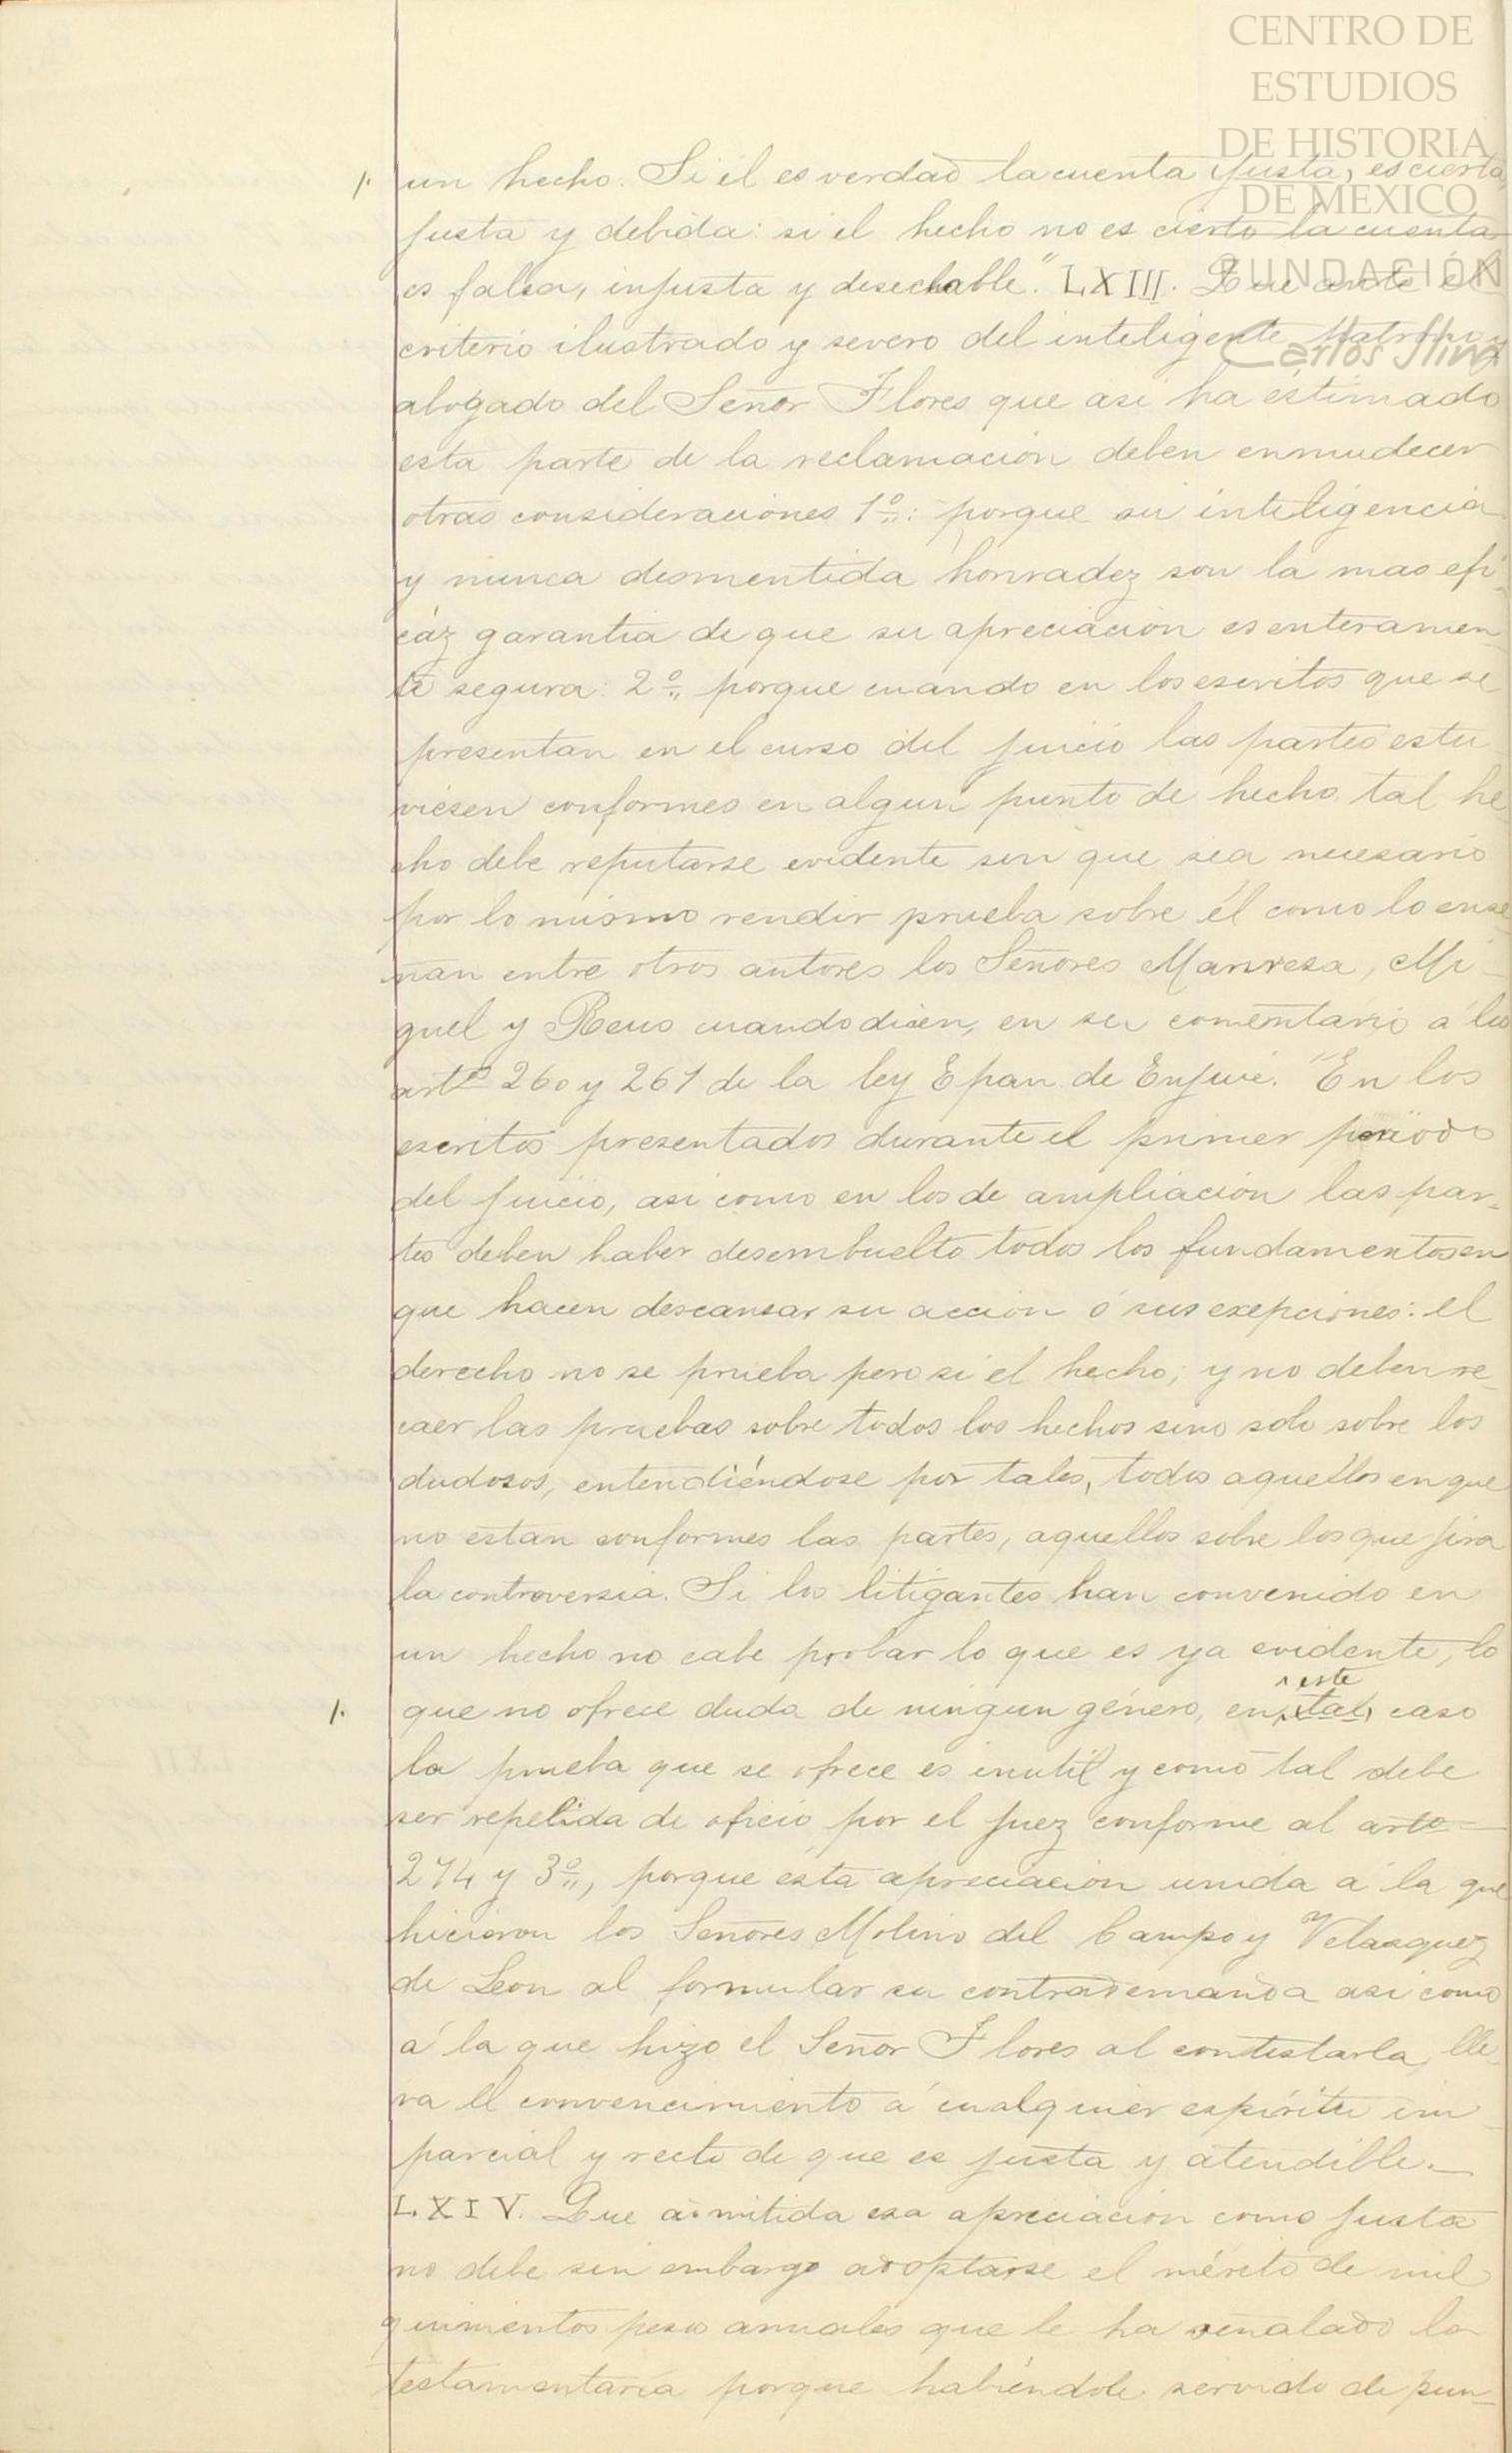 CENTRO DE
ESTUDIOS
DE HISTORIA
DE MEXICO
FUNDACIÓN
Carlos Slim
1. un hecho. Si él es verdad la cuenta justa, es cierta,
justa y debida: si el hecho no es cierto la cuenta
es falsa, injusta y desechable." LXIII. Que ante el
criterio ilustrado y severo del inteligente Patrono y
abogado del Señor Flores que asi ha estimado
esta parte de la reclamación deben enmudecer
otras consideraciones 1º: porque su inteligencia
y nunca desmentida honradez son la mas efi-
cáz garantia de que su apreciación es enteramen
te segura: 2º, porque cuando en los escritos que se
presentan en el curso del juicio las partes estu
viesen conformes en algun punto de hecho tal he
cho debe reputarse evidente sin que sea necesario
por lo mismo rendir prueba sobre él como lo ense
ñan entre otros autores los Señores Manresa, Mi-
quel y Reus cuando dicen, en su comentario á los
artos 260 y 261 de la ley Espan. de Enjuic. "En los
escritos presentados durante el primer período
del juicio, asi como en los de ampliación las par-
tes deben haber desembuelto todos los fundamentos en
que hacen descansar su acción ó sus exepciones: el
derecho no se prueba pero si el hecho; y no deben re-
caer las pruebas sobre todos los hechos sino solo sobre los
dudosos, entendiéndose por tales, todos aquellos en que
no estan conformes las partes, aquellos sobre los que jira
la controversia. Si los litigantes han convenido en
un hecho no cabe probar lo que es ya evidente, lo
este
1. que no ofrece duda de ningun género, en tal caso
la prueba que se ofrece es inutil y como tal debe
ser repelida de oficio por el juez conforme al arto
274 y 3º, porque esta apreciación unida á la que
hicieron los Señores Molino del Campo y Velazquez
de Leon al formular su contrademanda asi como
á la que hizo el Señor Flores al contestarla, lle-
va el convencimiento á cualquier espíritu im
parcial y recto de que es justa y atendible.
LXIV. Que admitida esa apreciación como justa
no debe sin embargo adoptarse el mérito de mil
quinientos pesos anuales que le ha señalado la
testamentaría porque habiéndole servido de pun-